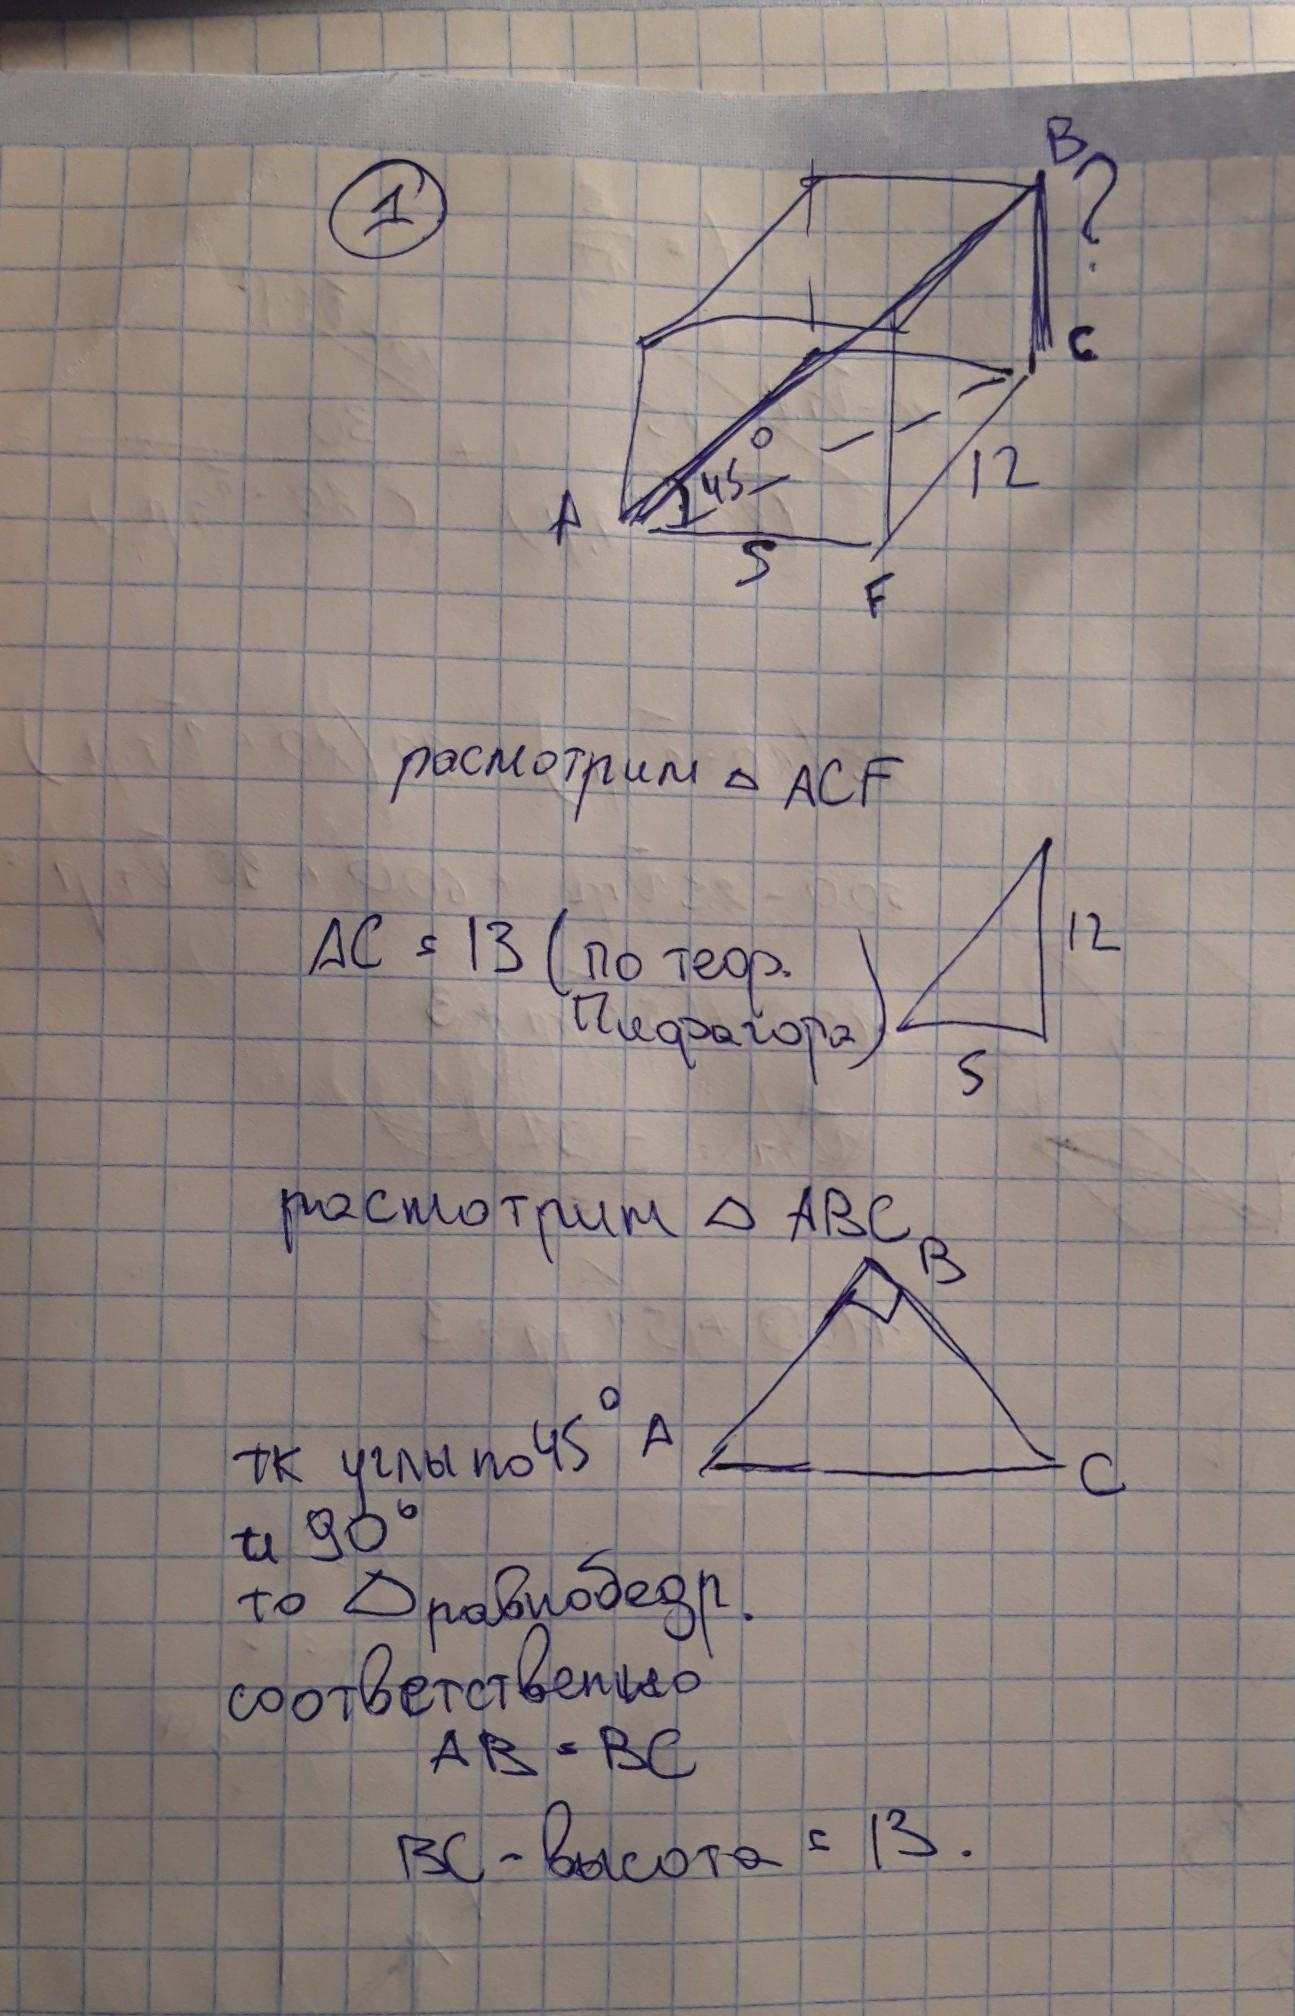 1
B
?
C
45°
12
A
5
F
расмотрим △ ACF
AC = 13 (по теор.
Пифагора)
12
5
расмотрим △ ABC
B
тк углы по 45°
A
C
и 90°
то △ равнобедр.
соответственно
AB = BC
BC - высота = 13.